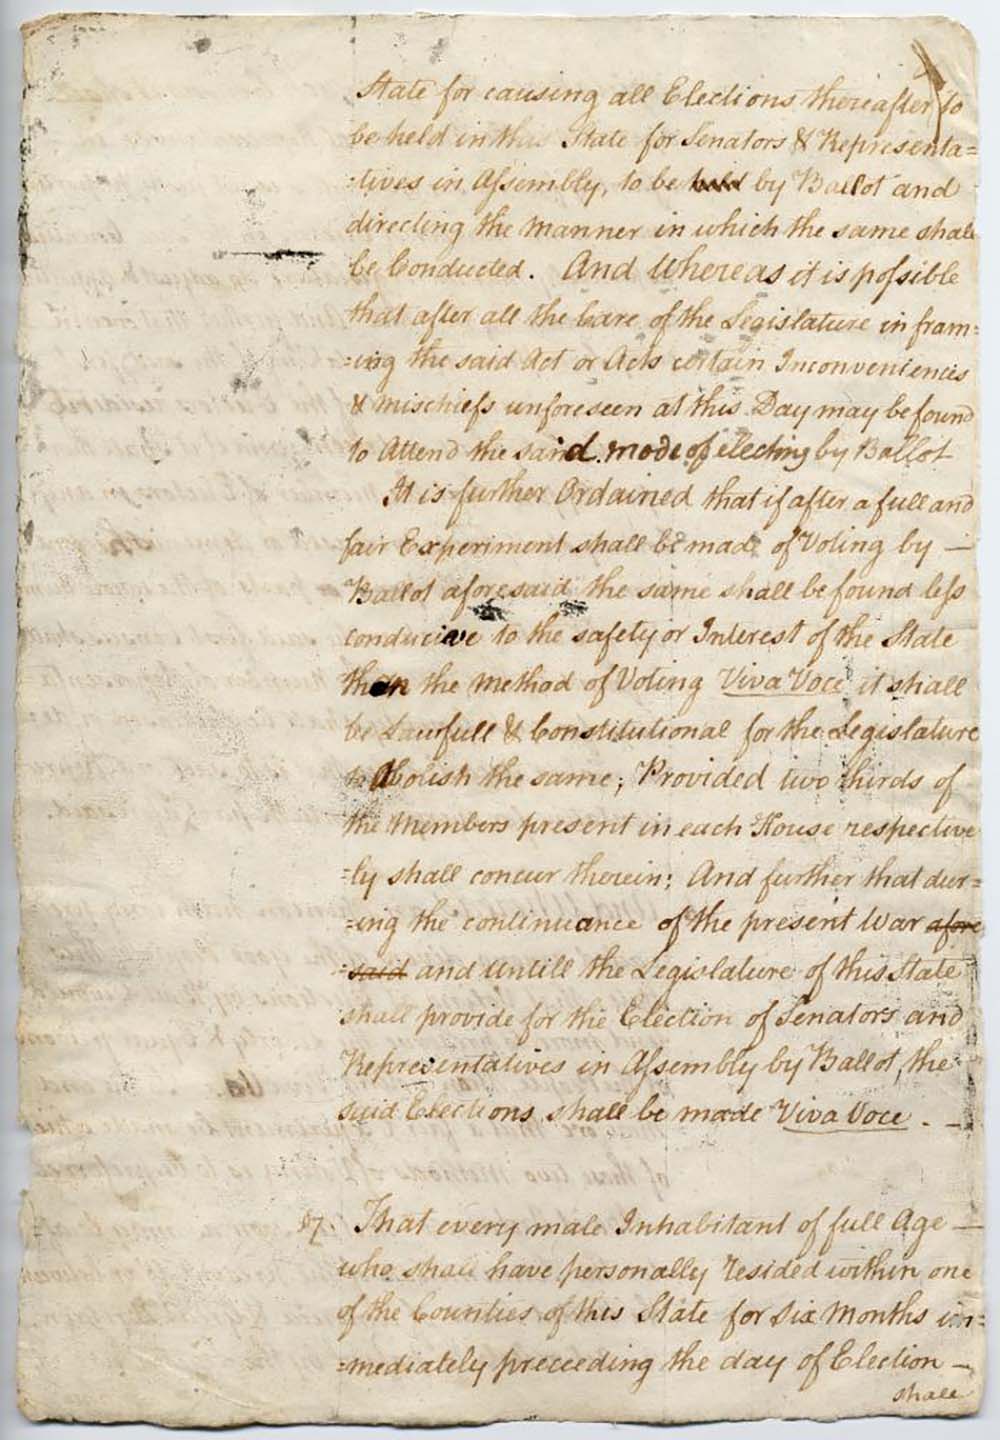 State for causing all Elections thereafter to
be held in this State for Senators & Representa=
=tives in Assembly, to be held by Ballot and
directing the Manner in which the same shall
be Conducted. And Whereas it is possible
that after all the Care of the Legislature in fram=
=ing the said Act or Acts certain Inconveniencies
& Mischiefs unforeseen at this Day may be found
to Attend the said mode of electing by Ballot
It is further Ordained that if after a full and
fair Experiment shall be made of Voting by —
Ballot aforesaid the same shall be found less
conducive to the safety or Interest of the State
than the Method of Voting Viva Voce it shall
be Lawfull & Constitutional for the Legislature
to Abolish the same; Provided two thirds of
the Members present in each House respective
=ly shall concur therein; And further that dur=
=ing the continuance of the present War afore
=said and Untill the Legislature of this State
shall provide for the Election of Senators and
Representatives in Assembly by Ballot, the
said Elections shall be made Viva Voce. —
07. That every male Inhabitant of full Age —
who shall have personally resided within one
of the Counties of this State for Six Months im=
=mediately preceeding the day of Election —
shall